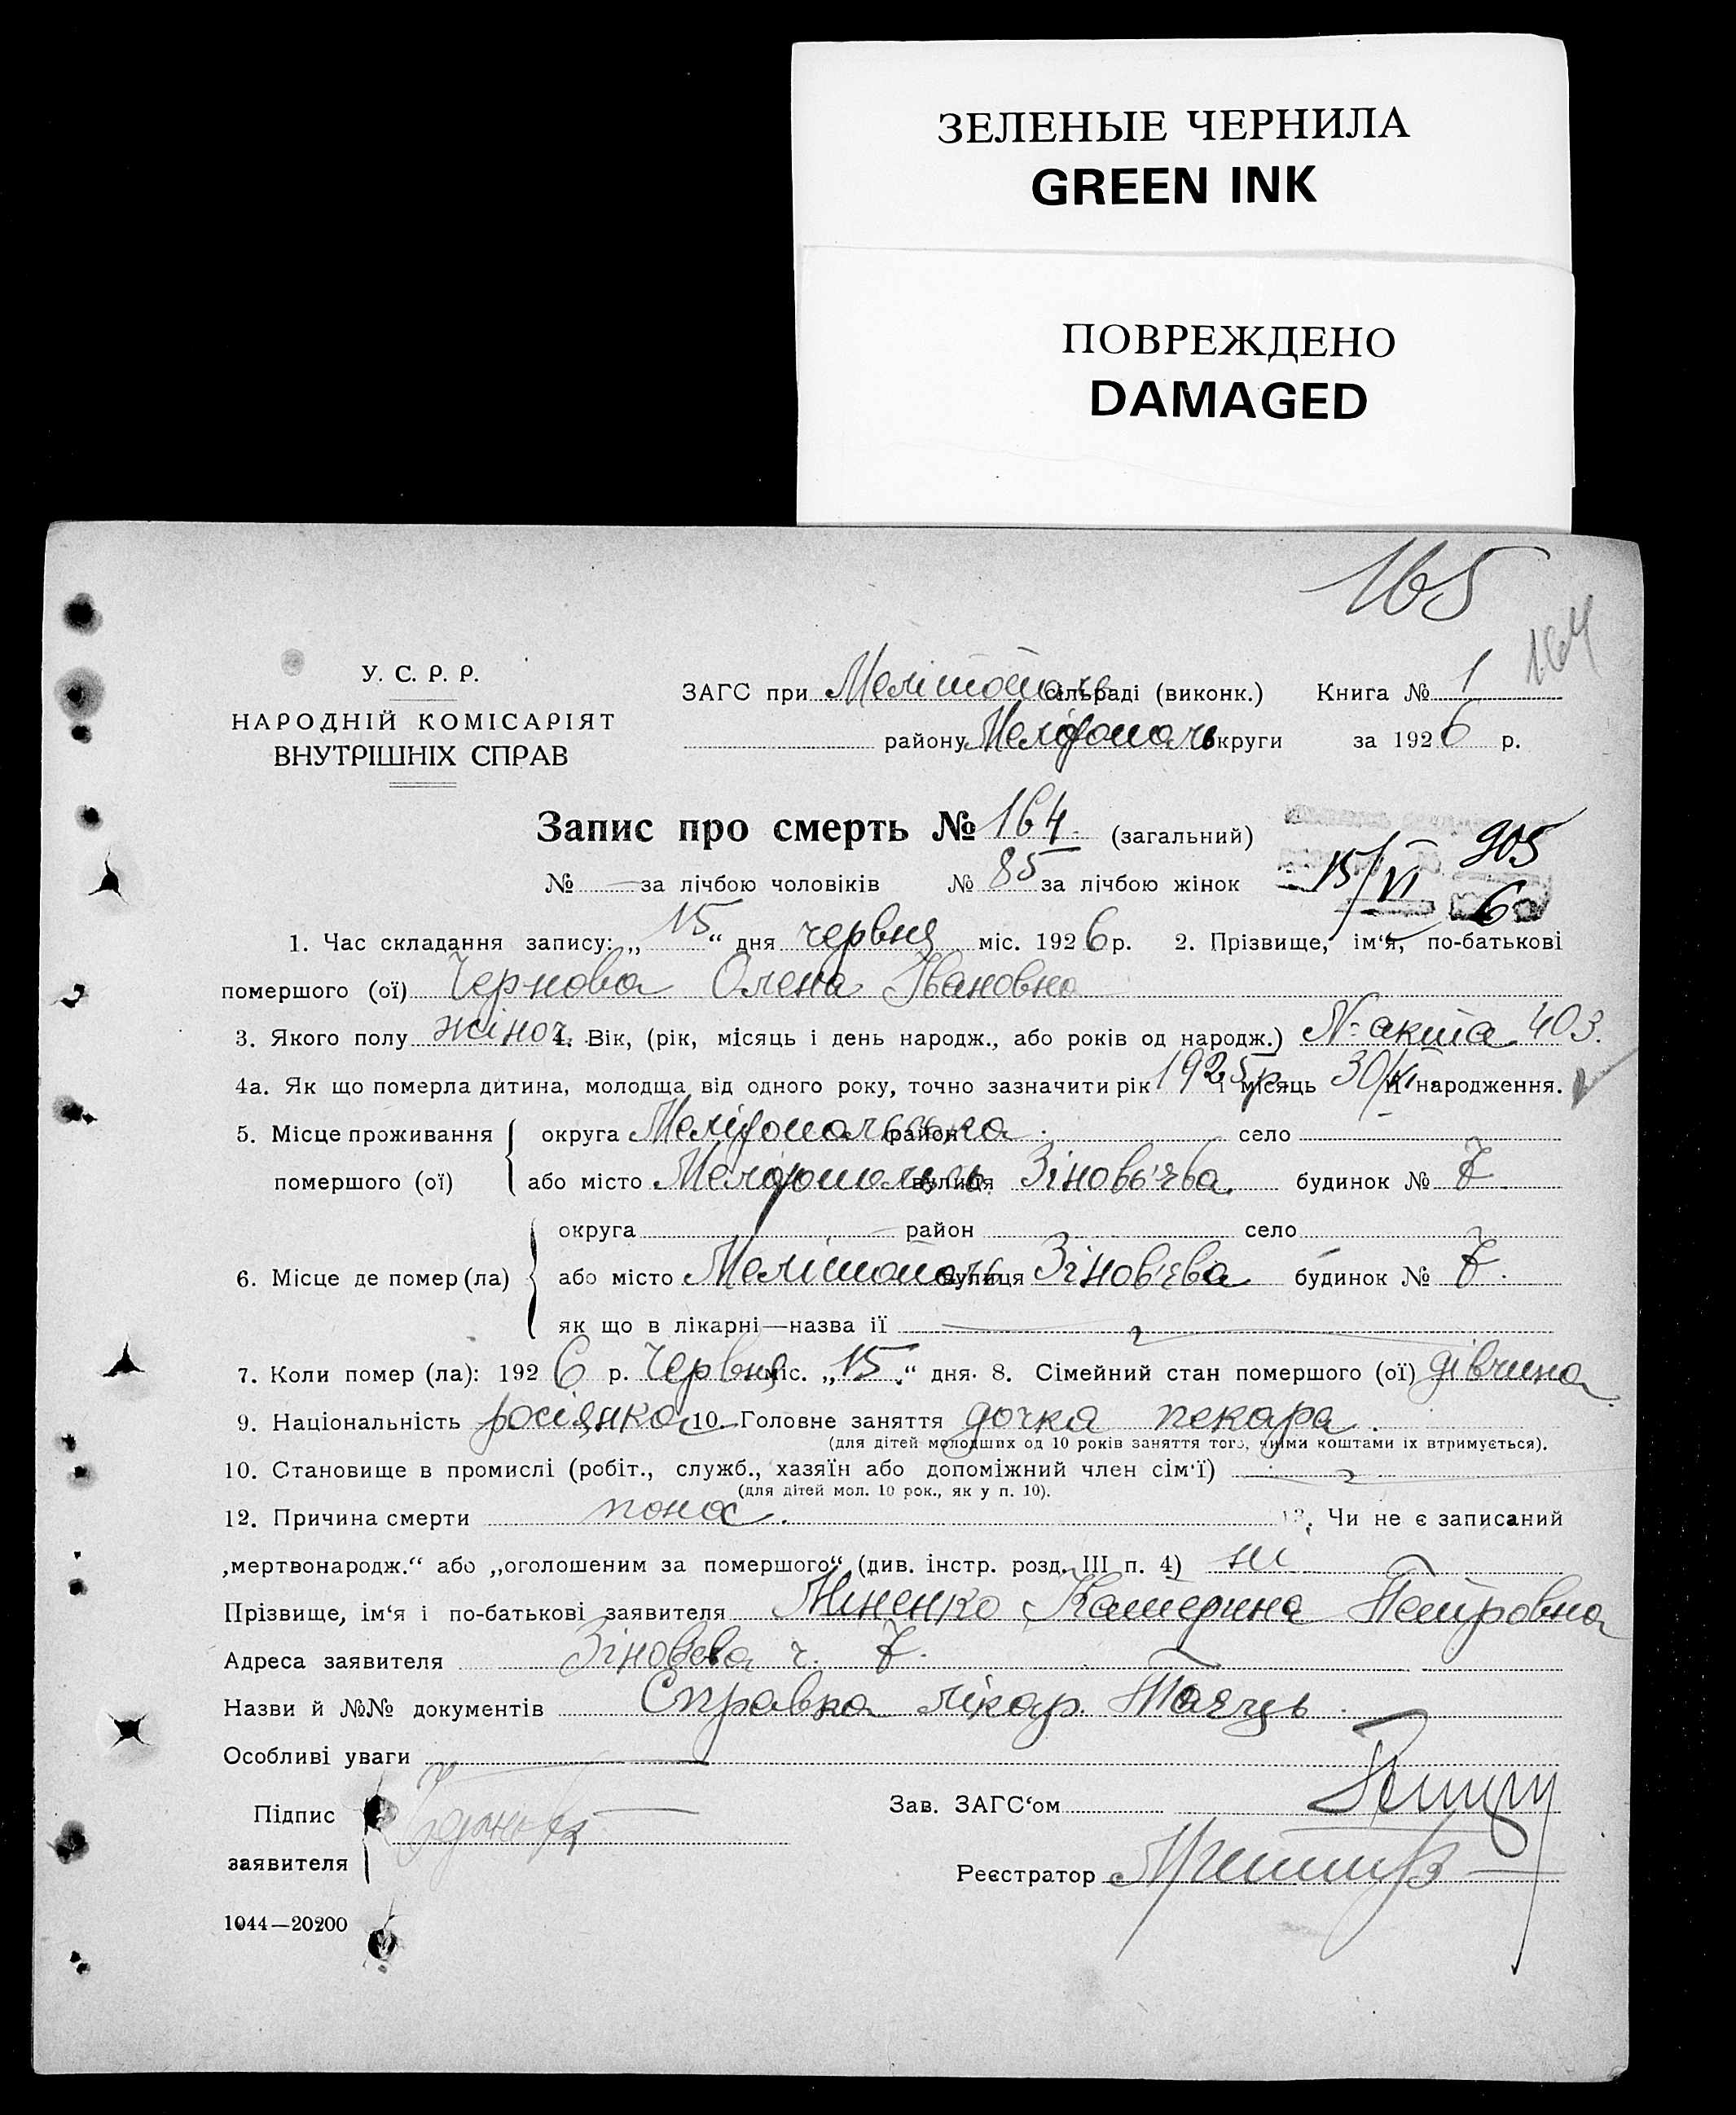 ЗЕЛЕНЫЕ ЧЕРНИЛА
GREEN INK
ПОВРЕЖДЕНО
DAMAGED
165
164
У. С. Р. Р.
НАРОДНІЙ КОМІСАРІЯТ
ВНУТРІШНІХ СПРАВ
ЗАГС при Мелітополь сільраді (виконк.) Книга № 1
району Мелітополь округи за 1926 р.
Запис про смерть № 164. (загальний)
№ — за лічбою чоловіків № 85 за лічбою жінок
15/VI 905
6
1. Час складання запису: „15“ дня червня міс. 1926 р. 2. Прізвище, ім‘я, по-батькові
помершого (ої) Чернова Олена Івановна
3. Якого полу жіноч. 4. Вік, (рік, місяць і день народж., або років од народж.) № акта 403.
4а. Як що померла дитина, молодща від одного року, точно зазначити рік 1925 р. і місяць 30/XI її народження.
5. Місце проживання округа Мелітопольська район село
помершого (ої) або місто Мелітополь вулиця Зінов'єва. будинок № 7
округа район село
6. Місце де помер (ла) або місто Мелітополь вулиця Зінов'єва будинок № 7.
як що в лікарні—назва її
7. Коли помер (ла): 1926 р. Червня міс. „15“ дня. 8. Сімейний стан помершого (ої) дівчина
9. Національність росіянка 10. Головне заняття дочка пекара.
(для дітей молодших од 10 років заняття того, чиїми коштами їх втримується).
10. Становище в промислі (робіт., служб., хазяїн або допоміжний член сім‘ї)
(для дітей мол. 10 рок., як у п. 10).
12. Причина смерти понос. 13. Чи не є записаний
„мертвонародж.“ або „оголошеним за помершого“ (див. інстр. розд. III п. 4) ні
Прізвище, ім‘я і по-батькові заявителя Міненко Катерина Петровна
Адреса заявителя Зінов'єва ч. 7.
Назви й №№ документів Справка лікар.
Особливі уваги
Підпис
заявителя
Зав. ЗАГС‘ом
Реєстратор
1044—20200